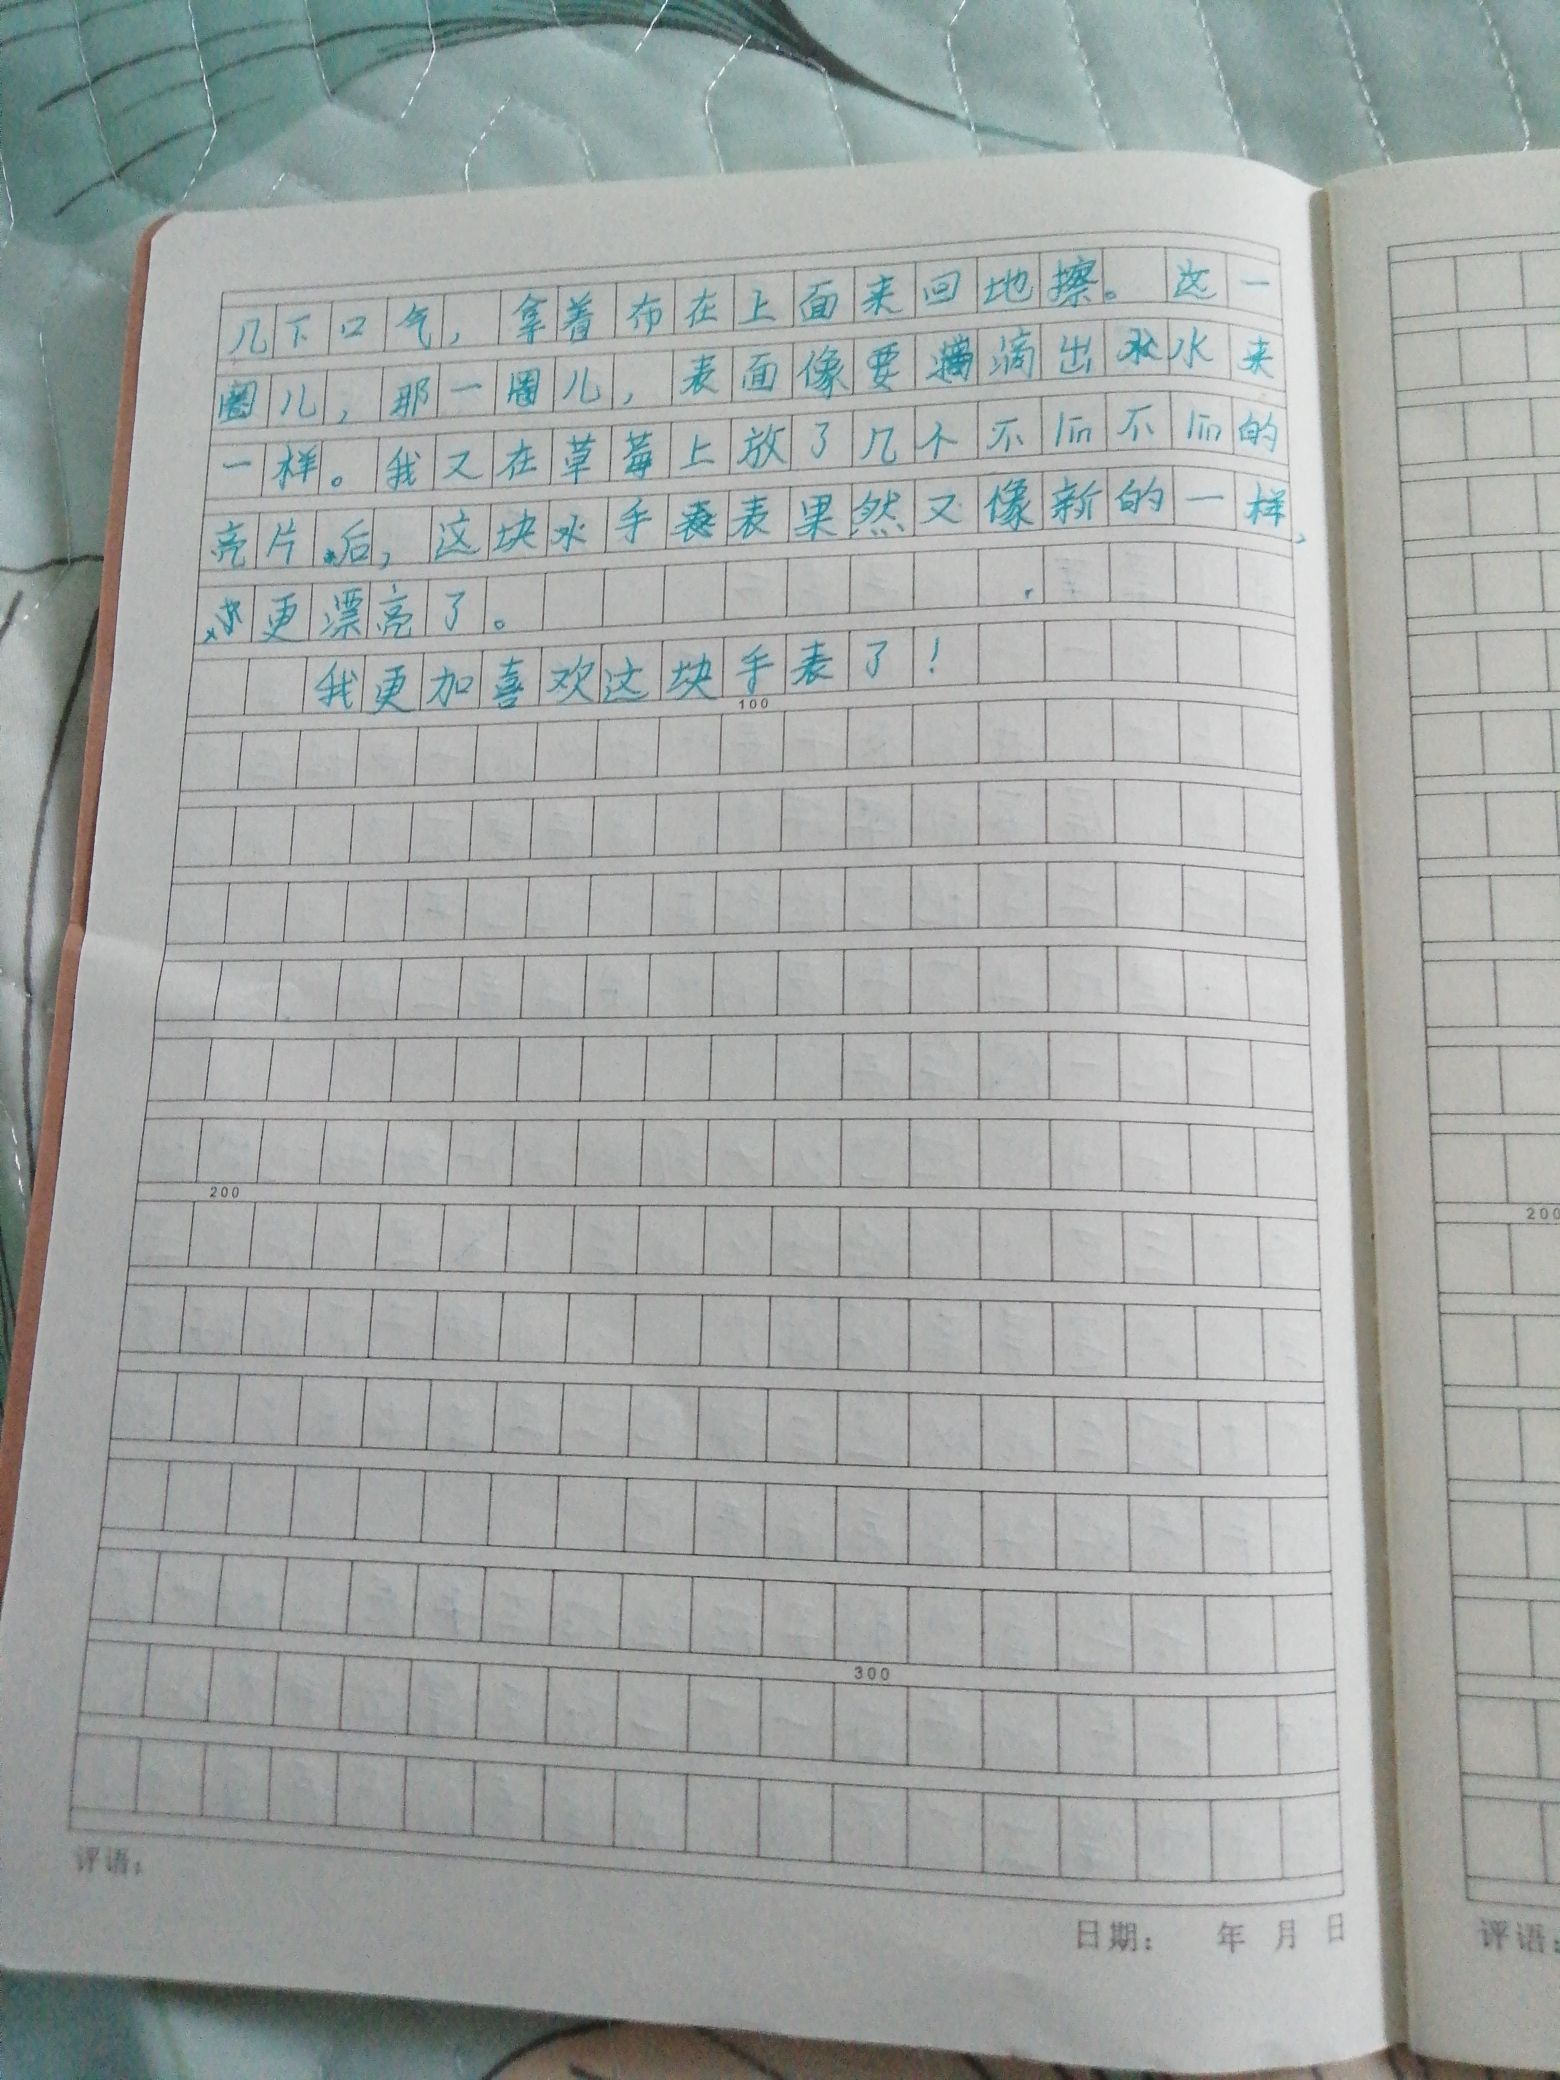 几下口气，拿着布在上面来回地擦。这一
圈儿，那一圈儿，表面像要滴出水来
一样。我又在草莓上放了几个不steam不steam的
亮片后，这块水手表果然又像新的一样，
更漂亮了。
我更加喜欢这块手表了！
100
200
300
评语：
日期： 年 月 日
200
评语：